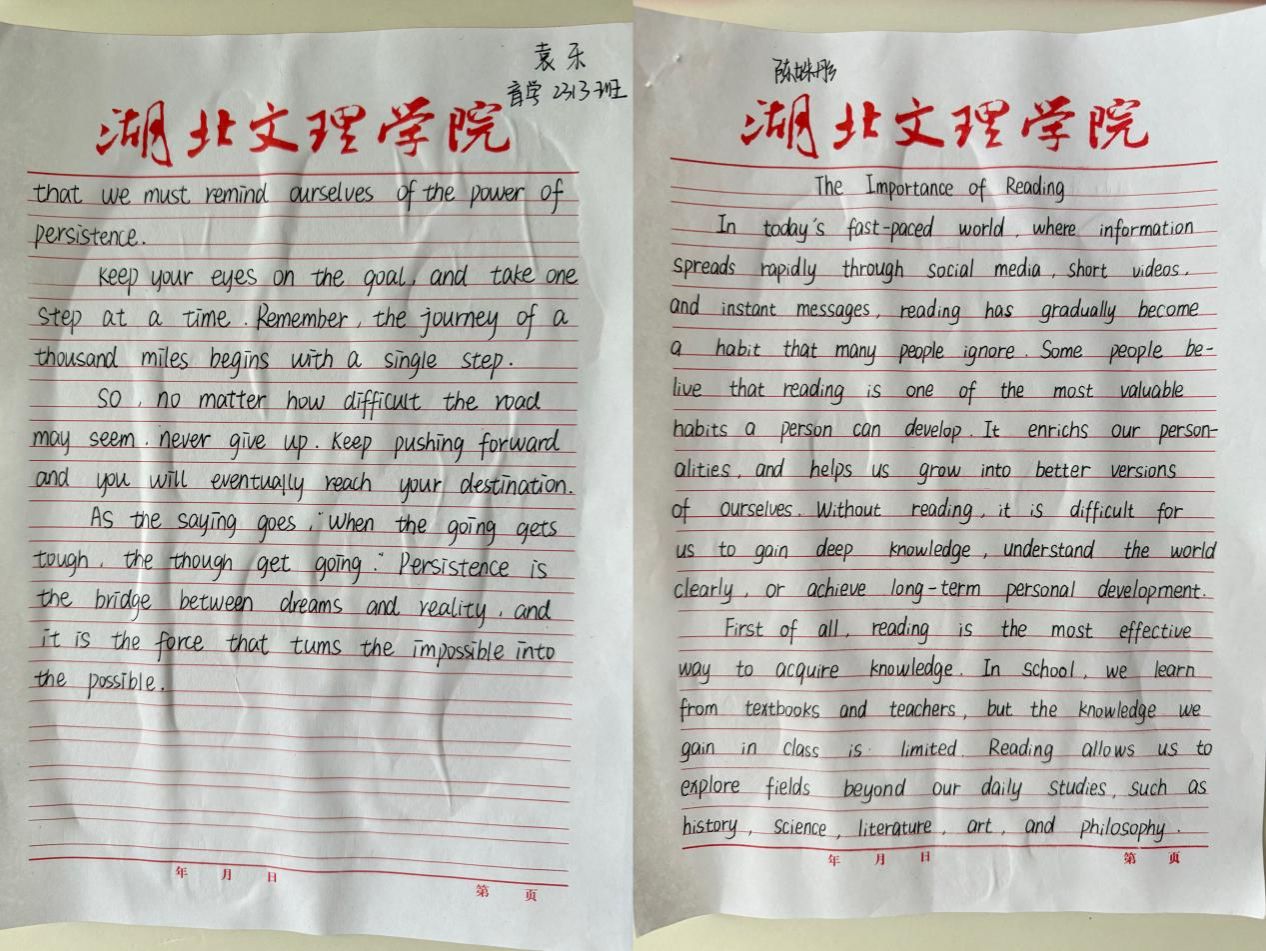 袁乐
育学2313班
湖北文理学院
that we must remind ourselves of the power of
persistence.
Keep your eyes on the goal, and take one
step at a time. Remember, the journey of a
thousand miles begins with a single step.
So, no matter how difficult the road
may seem, never give up. Keep pushing forward
and you will eventually reach your destination.
As the saying goes, "when the going gets
tough, the though get going." Persistence is
the bridge between dreams and reality, and
it is the force that turns the impossible into
the possible.
年 月 日
第 页
湖北文理学院
The Importance of Reading
In today's fast-paced world, where information
spreads rapidly through social media, short videos,
and instant messages, reading has gradually become
a habit that many people ignore. Some people be-
live that reading is one of the most valuable
habits a person can develop. It enrichs our person-
alities, and helps us grow into better versions
of ourselves. Without reading, it is difficult for
us to gain deep knowledge, understand the world
clearly, or achieve long-term personal development.
First of all, reading is the most effective
way to acquire knowledge. In school, we learn
from textbooks and teachers, but the knowledge we
gain in class is limited. Reading allows us to
explore fields beyond our daily studies, such as
history, science, literature, art, and philosophy.
年 月 日
第 页